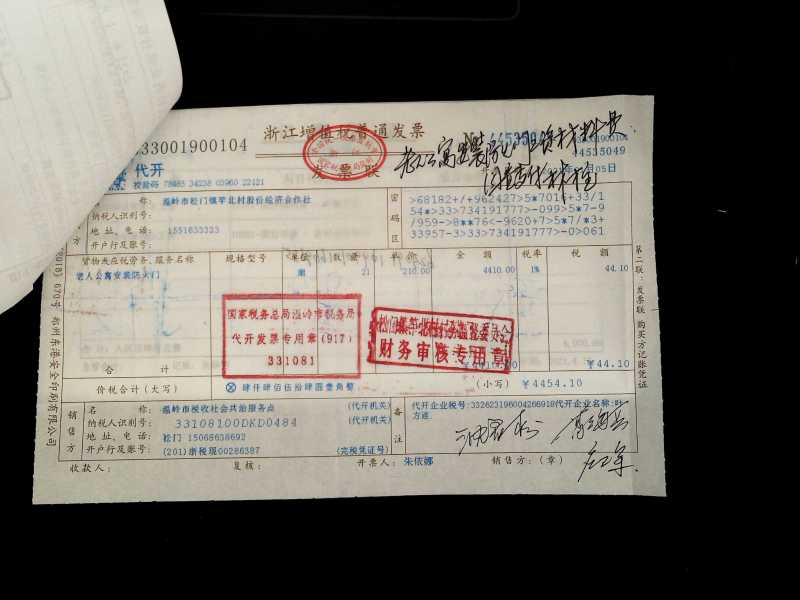 33001900104
浙江增值税普通发票
发票联
代开
校验码 78485 34238 03960 22121
35049
05日
名称:温岭市松门镇宇北村股份经济合作社
纳税人识别号:
地址、电话:1551633323
开户行及账号:
密码区
>68182+/+962427>5*701++33/1
54*>33>734191777>-099>5*7-9
/959->8**76<-9620+7>5*7/*3+
33957-3>33>734191777>-0>061
货物或应税劳务、服务名称 规格型号 单位 数量 单价 金额 税率 税额
老人公寓安装防火门 21 210.00 4410.00 1% 44.10
国家税务总局温岭市税务局
代开发票专用章(917)
331081
财务审核专用章
合计 ¥44.10
价税合计(大写) 肆仟肆佰伍拾肆圆壹角整 (小写) ¥4454.10
销售方
名称:温岭市税收社会共治服务点 (代开机关)
纳税人识别号:33108100DKD0484 (代开机关)
地址、电话:松门 15068638692
开户行及账号:(201)浙税现00286387 (完税凭证号)
备注
代开企业税号:332623196004266918代开企业名称:叶
方连
收款人: 复核: 开票人:朱依娜 销售方:(章)
第二联:发票联 购买方记账凭证
670号 杭州东港安全印刷有限公司